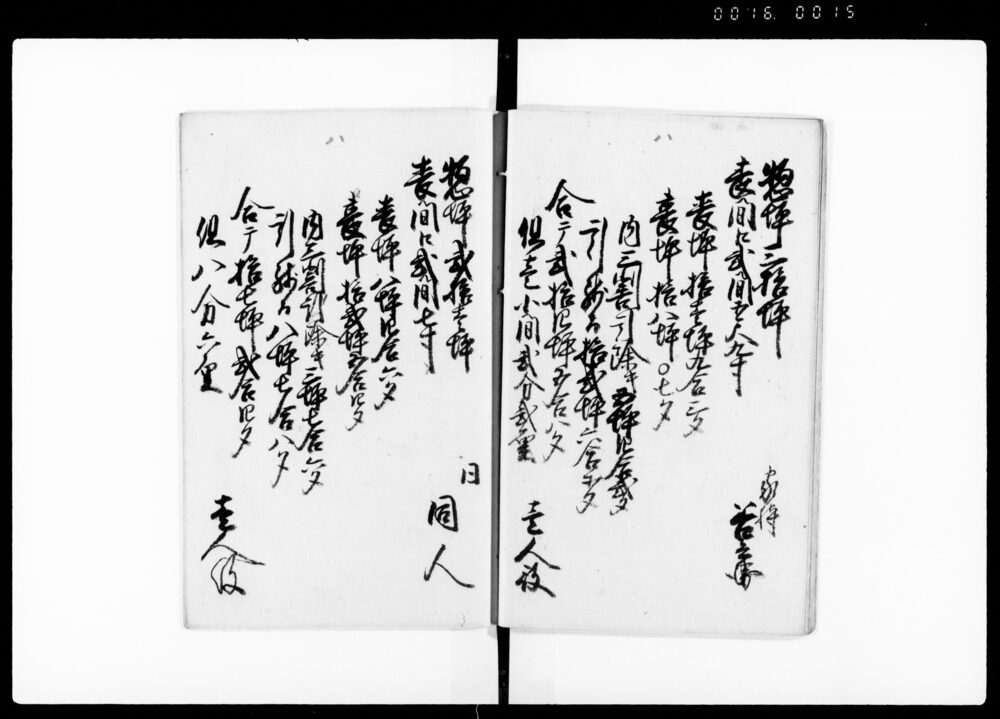 0016. 0015
八
惣坪三拾坪
表間口弐間五尺九寸
家持
表坪拾壱坪九合三夕
裏坪拾八坪〇七夕
内三割引除キ五坪四合弐夕
引残而拾弐坪六合五夕
合テ弐拾四坪五合八夕
但壱小間弐分弐厘
壱人役
八
惣坪弐拾壱坪
同
表間口弐間七寸
同人
表坪八坪四合六夕
裏坪拾弐坪五合四夕
内三割引除キ三坪七合六夕
引残而八坪七合八夕
合テ拾七坪弐合四夕
但八分六厘
壱人役